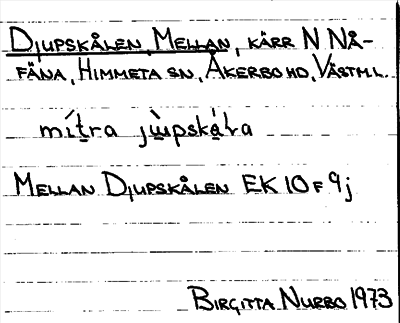 DJUPSKÅLEN, MELLAN, KÄRR N NÅ-
FÄNA, HIMMETA SN, ÅKERBO HD, VÄSTM.L.
mítra jùpskálra
MELLAN DJUPSKÅLEN EK 10F 9j
BIRGITTA NURBO 1973